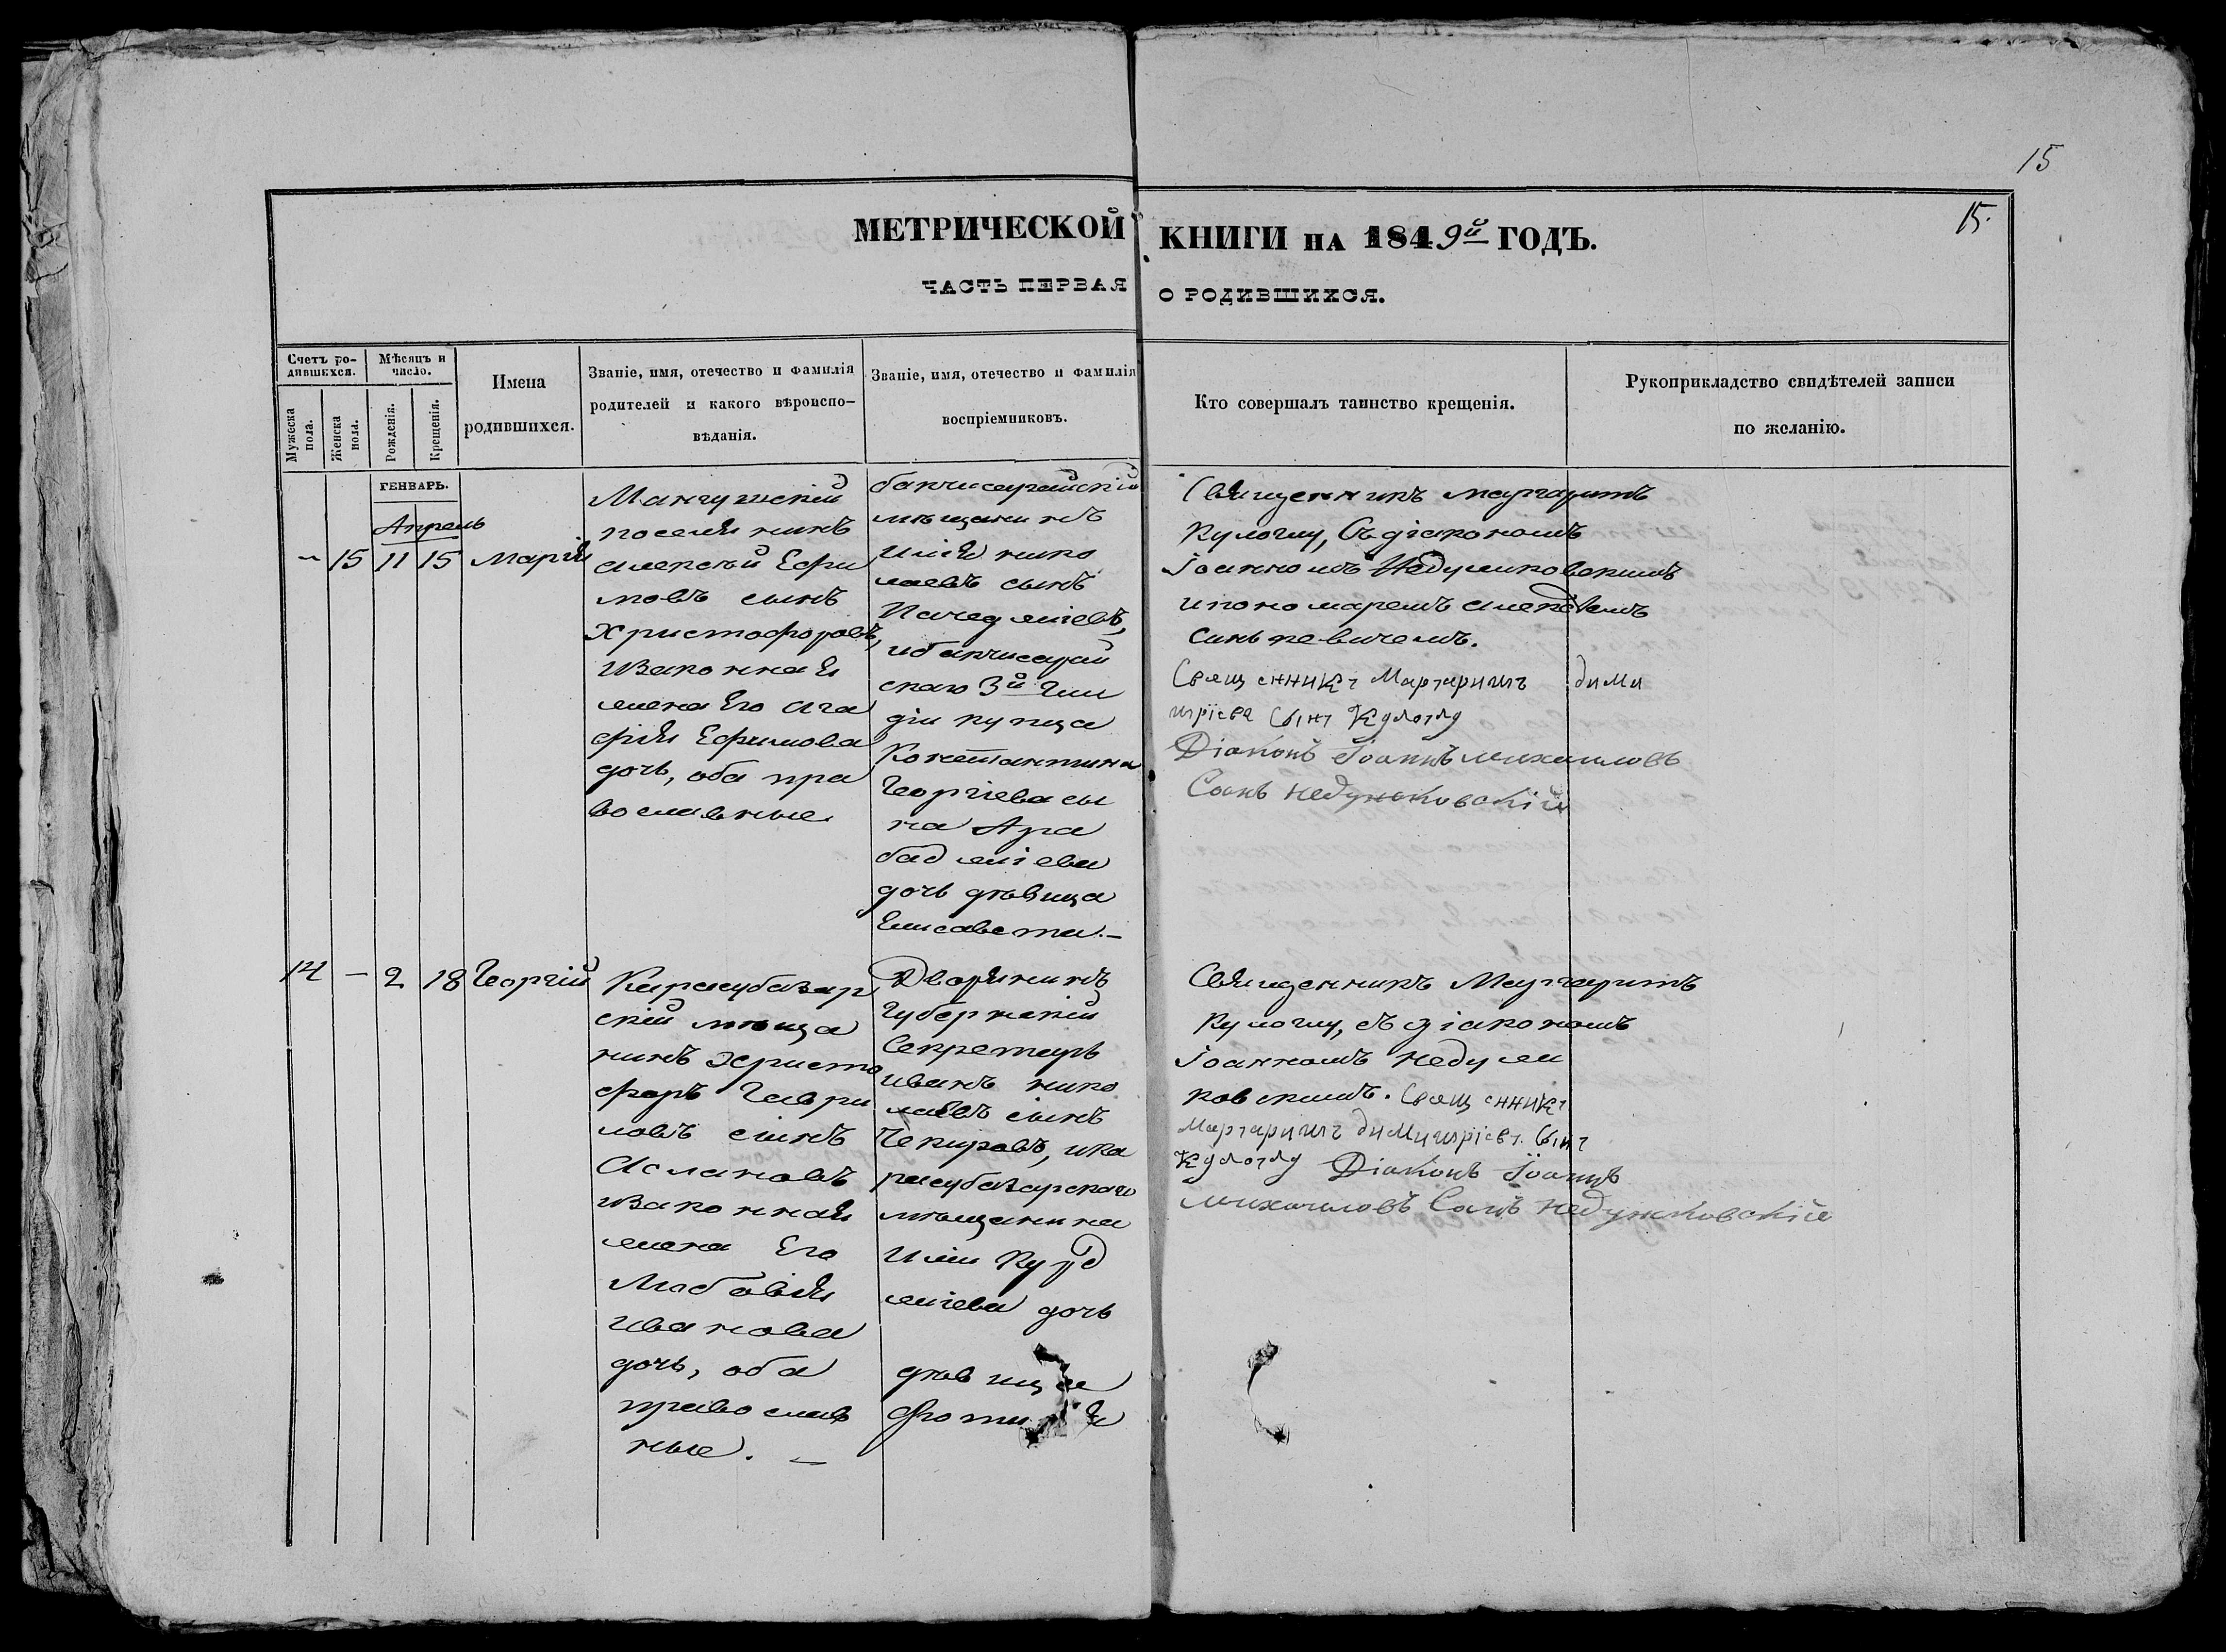 15
15.
МЕТРИЧЕСКОЙ КНИГИ НА 1849й ГОДЪ.
ЧАСТЬ ПЕРВАЯ О РОДИВШИХСЯ.
Счетъ родившихся.
Мужеска пола.
Женска пола.
Мѣсяцъ и число.
Рожденія.
Крещенія.
Имена
родившихся.
Званіе, имя, отечество и фамилія
родителей и какого вѣроиспо-
вѣданія.
Званіе, имя, отечество и фамилія
воспріемниковъ.
Кто совершалъ таинство крещенія.
Рукоприкладство свидѣтелей записи
по желанію.
ГЕНВАРЬ.
Апрель
– 15 11 15 Марія
Мангушскій
поселянинъ
Алексѣй Ефи
мовъ сынъ
Христофоровъ,
изаконная
жена Его Ага
фія Ефимова
дочь, оба пра
вославные
бакчисарайскій
мѣщанинъ
Илія нико
лаевъ сынъ
иБакчисарай
скаго 3й Гил
діи купца
Константина
Георгіева сы
на Ара
баджіева
дочь дѣвица
Елисавета. –
Священникъ Маргаритъ
Кулоглу, Съ діакономъ
Іоанномъ Недумковскимъ
ипономаремъ Алексѣемъ
Синькевичемъ.
Священникъ Маргаритъ дими
тріевъ сынъ Кулоглу
Діаконъ Іоаннъ михаиловъ
Сынъ Недумковскій
14 – 2 18 Георгій
Карасубазар
скій мѣща
нинъ Христо
форъ Гаври
ловъ сынъ
Аслановъ
изаконная
жена Его
Иванова
дочь, оба
православ
ные. –
Дворянинъ
Губернскій
Секретарь
иванъ нико
лаевъ сынъ
Чекировъ, ика
расубазарскаго
мѣщанина
Иліи Курд
жіева дочь
дѣвица
Фотинія
Священникъ Маргаритъ
Кулоглу, съ діакономъ
Іоанномъ Недум
ковскимъ. Священникъ
Маргаритъ димитріевъ. сынъ
Кулоглу Діаконъ Іоаннъ
михаиловъ Сынъ Недумковскій